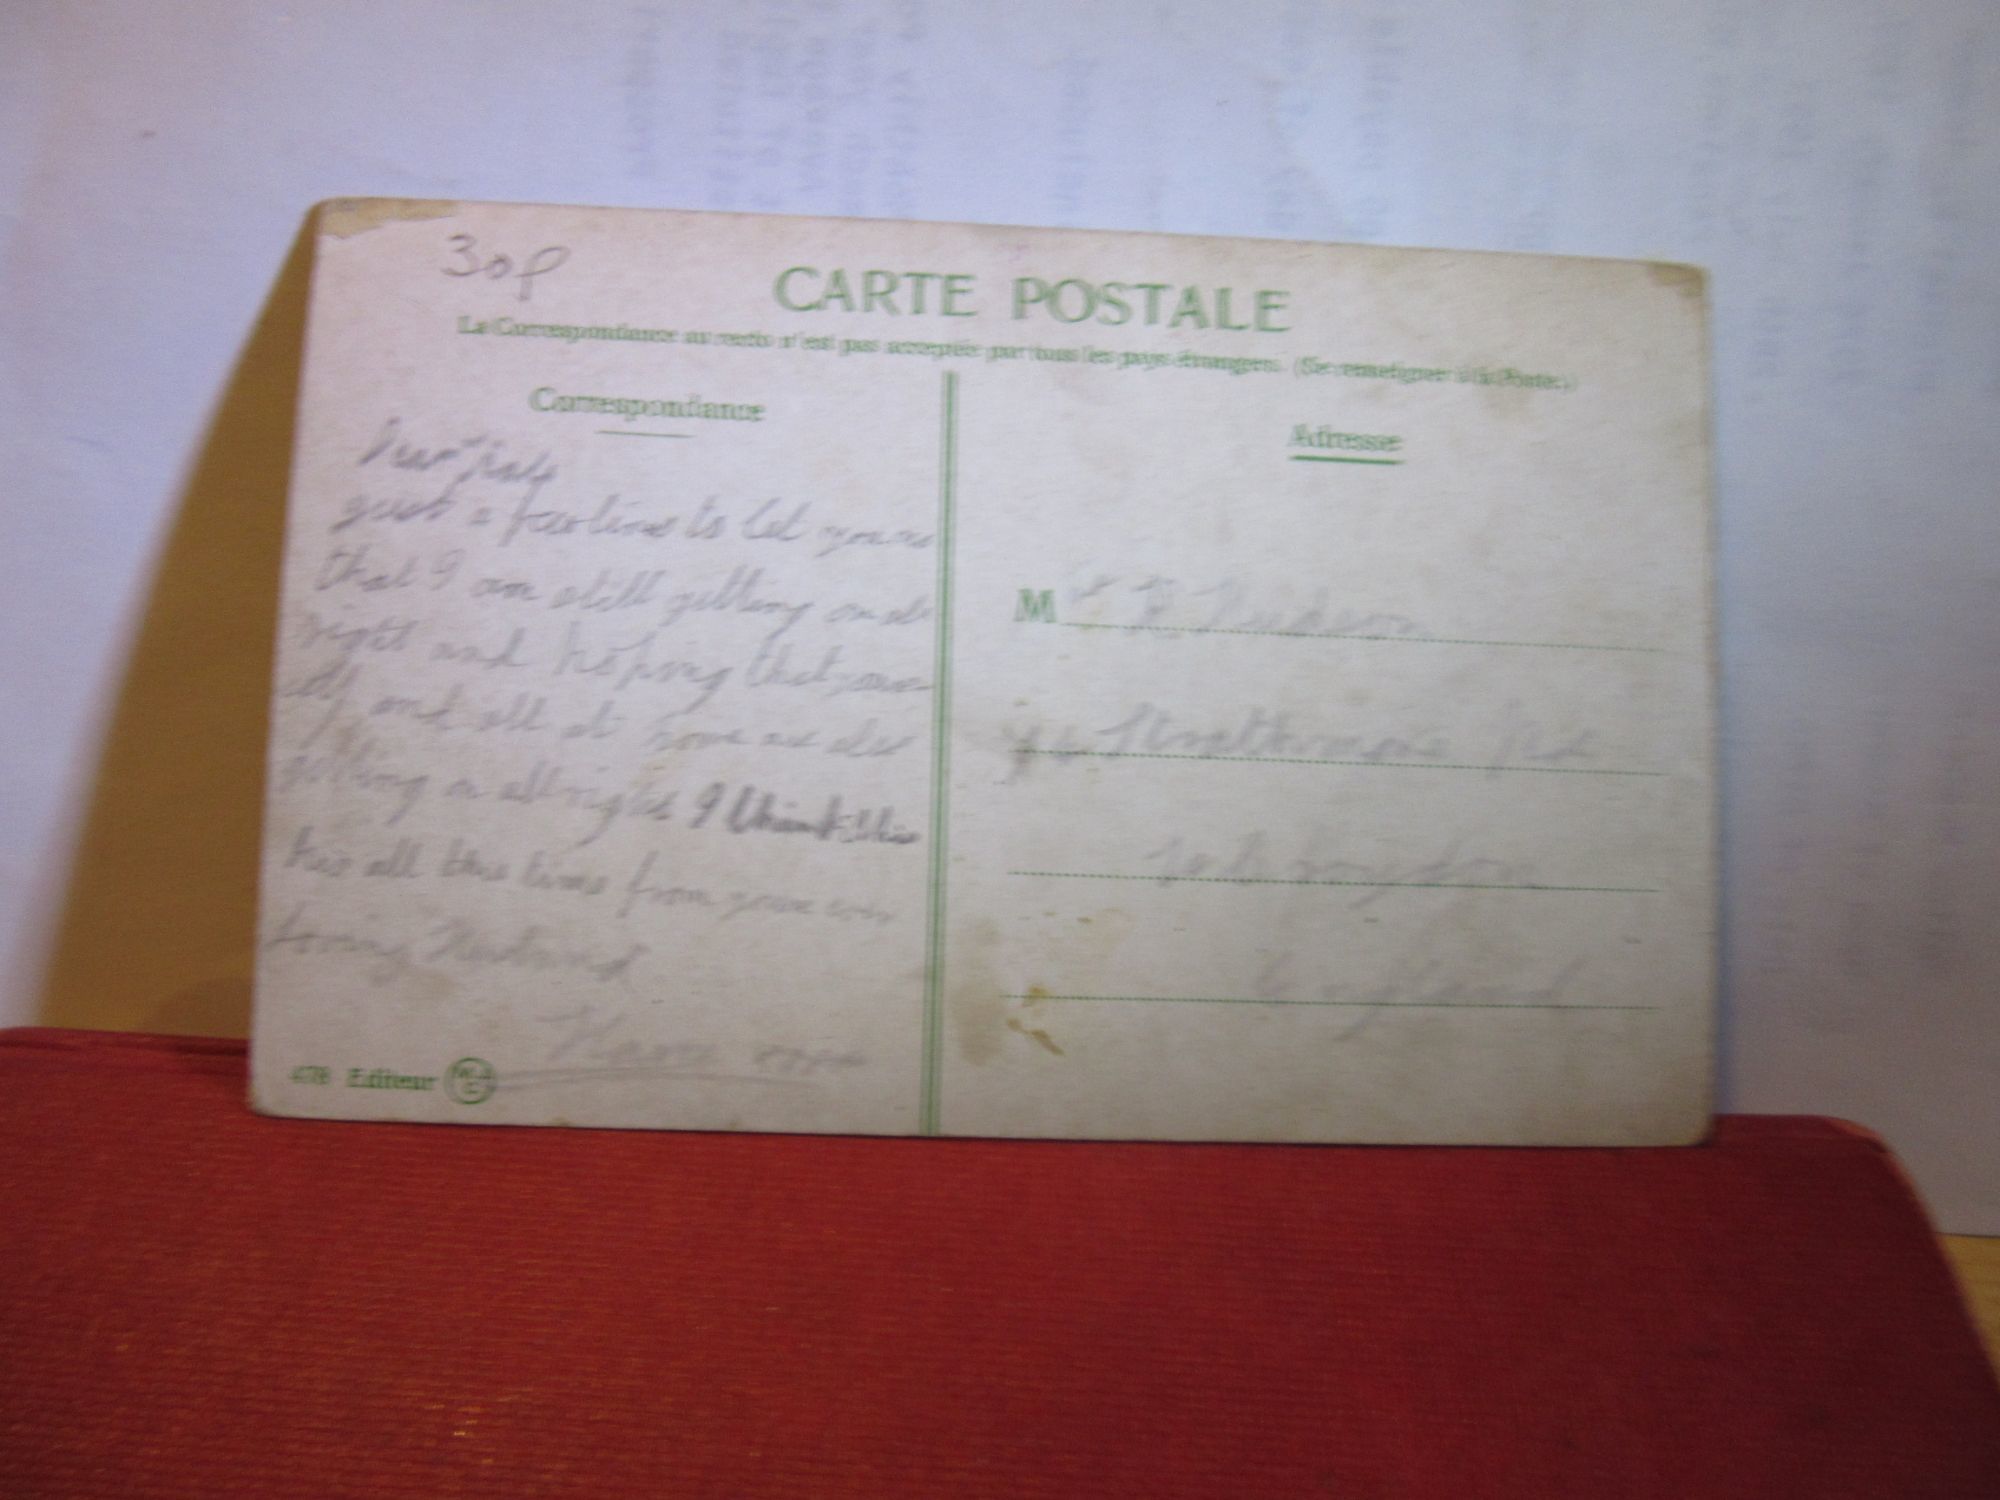 30p
CARTE POSTALE
La Correspondance au recto n'est pas acceptée par tous les pays étrangers. (Se renseigner à la Poste.)
Correspondance
Adresse
Dear
just a few lines to let you
that I am still getting on al
right and hoping that your
self and all at home are
getting on allright I think this
all this time from your
loving Husband
M
Strathmore
W Croydon
England
478 Editeur